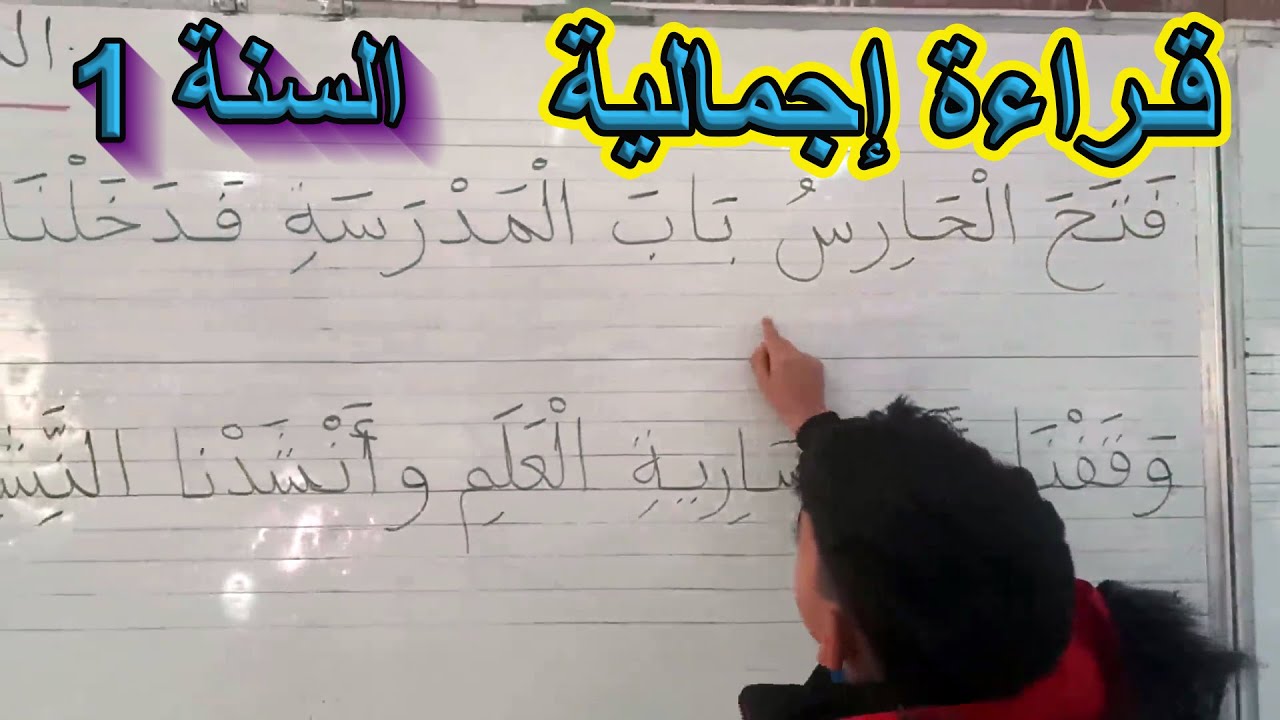 قراءة إجمالية السنة 1
فَتَحَ الْحَارِسُ بَابَ الْمَدْرَسَةِ فَدَخَلْنَا
وَقَفْنَا سَارِيَةِ الْعَلَمِ وأَنْشَدْنا